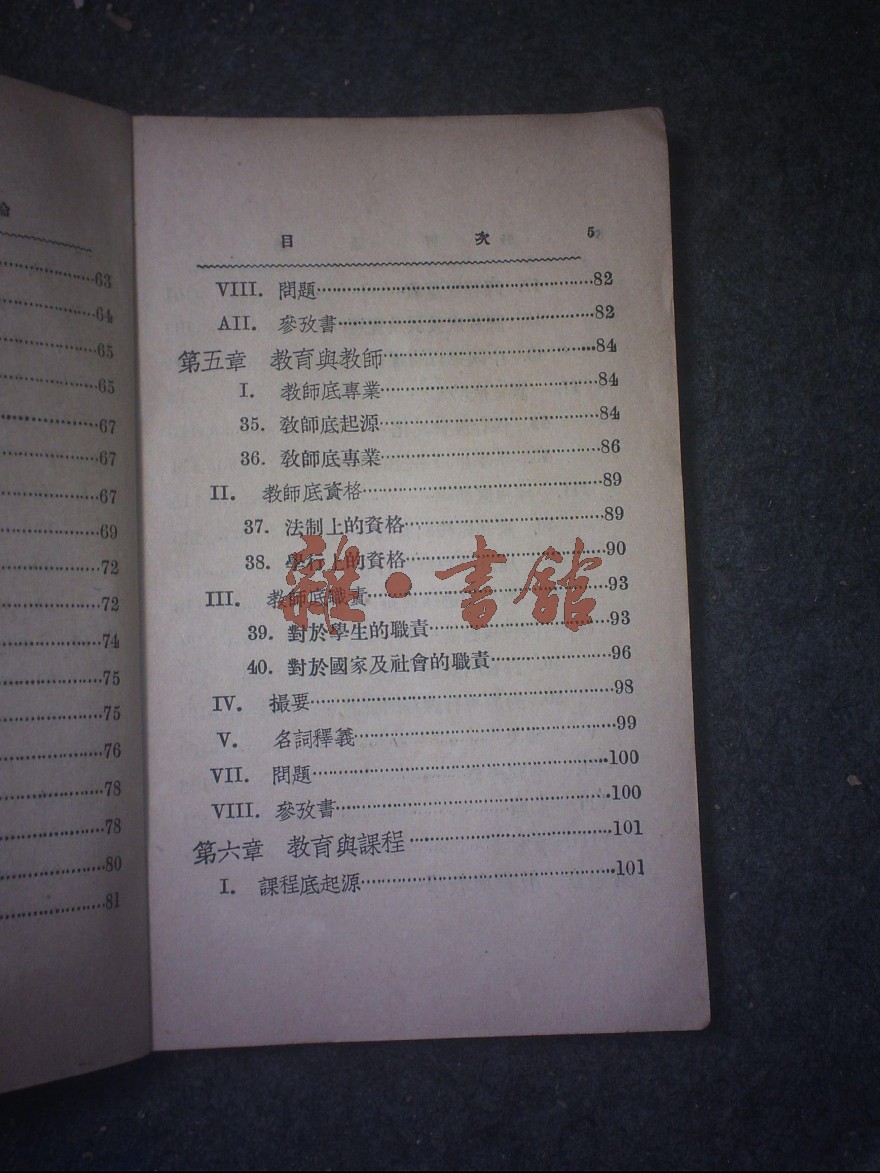 論
63
64
65
65
67
67
67
69
72
72
74
75
75
76
78
78
80
81
目 次 5
VIII. 問題……82
AII. 參攷書……82
第五章 教育與教師……84
I. 教師底專業……84
35. 教師底起源……84
36. 教師底專業……86
II. 教師底資格……89
37. 法制上的資格……89
38. 學行上的資格……90
III. 教師底職責……93
39. 對於學生的職責……93
40. 對於國家及社會的職責……96
IV. 撮要……98
V. 名詞釋義……99
VII. 問題……100
VIII. 參攷書……100
第六章 教育與課程……101
I. 課程底起源……101
雜·書館